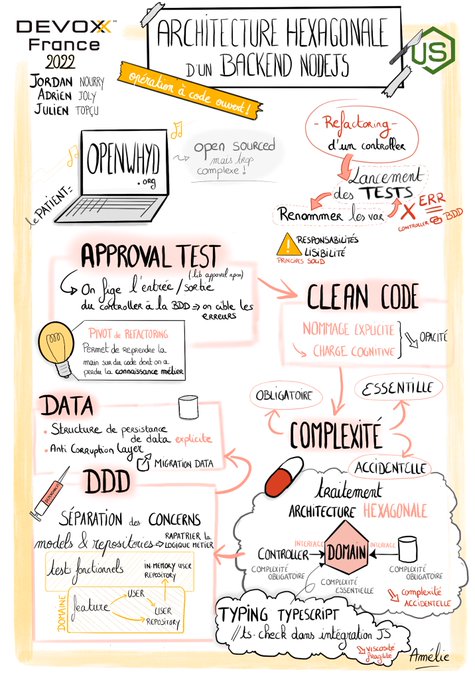 DEVOXX™
France
2022
JORDAN NOURRY
ADRIEN JOLY
JULIEN TOPÇU
ARCHITECTURE HEXAGONALE
D'UN BACKEND NODEJS
opération à code ouvert!
JS
le PATIENT:
OPENWHYD
.org
open sourced
mais trop
complexe!
- Refactoring -
d'un controller
Lancement
des TESTS
Renommer les var
X ERR
CONTROLLER BDD
RESPONSABILITÉS
LISIBILITÉ
PRINCIPES SOLID
APPROVAL TEST
(lib approval npm)
On fige l'entrée/sortie
du controller à la BDD ⇒ on cible les
erreurs
PIVOT de REFACTORING
Permet de reprendre la
main sur du code dont on a
perdu la connaissance métier
CLEAN CODE
NOMMAGE EXPLICITE
CHARGE COGNITIVE
OPACITÉ
DATA
• Structure de persistance
de data explicite
• Anti Corruption Layer
MIGRATION DATA
OBLIGATOIRE
ESSENTIELLE
COMPLEXITÉ
ACCIDENTELLE
DDD
SÉPARATION des CONCERNS
models & repositories → RAPATRIER la
LOGIQUE MÉTIER
test fonctionnels
IN-MEMORY USER
REPOSITORY
DOMAINE
feature
USER
USER
REPOSITORY
traitement
ARCHITECTURE HEXAGONALE
INTERFACE
INTERFACE
CONTROLLER
DOMAIN
COMPLEXITÉ
OBLIGATOIRE
COMPLEXITÉ
ESSENTIELLE
COMPLEXITÉ
OBLIGATOIRE
complexité
ACCIDENTELLE
TYPING TYPESCRIPT
//ts-check dans intégration JS
viscosité
fragilité
Amélie